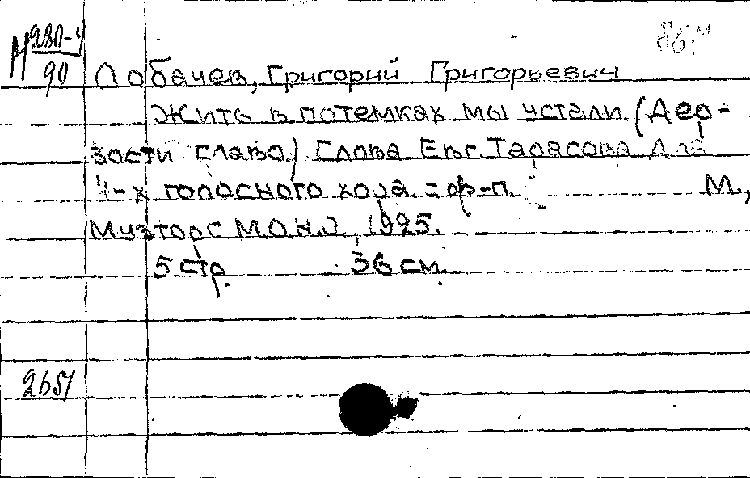 М 280-4
90
Лобачев, Григорий Григорьевич
Жить в потемках мы устали (Дер-
зости слава) Слова Евг. Тарасова Для
4-х голосного хора с ф-п. М.,
Музторг М.О.Н.О, 1925.
5 стр. 36 см.
2651